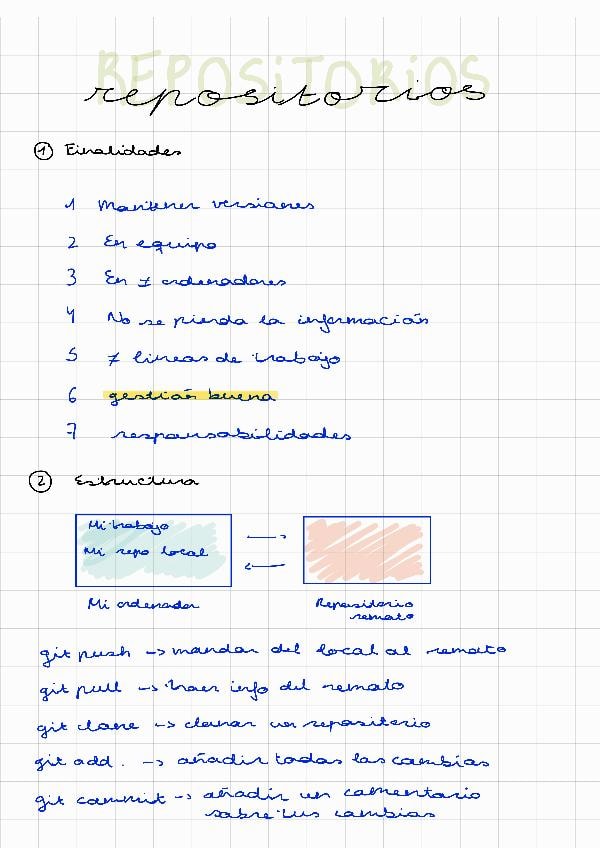 REPOSITORIOS
repositorios
① Finalidades
1 Mantener versiones
2 En equipo
3 En ≠ ordenadores
4 No se pierda la información
5 ≠ lineas de trabajo
6 gestión buena
7 responsabilidades
② Estructura
Mi trabajo
Mi repo local
Mi ordenador
Repositorio
remoto
git push -> mandar del local al remoto
git pull -> traer info del remoto
git clone -> clonar un repositorio
git add . -> añadir todos los cambios
git commit -> añadir un comentario
sobre tus cambios